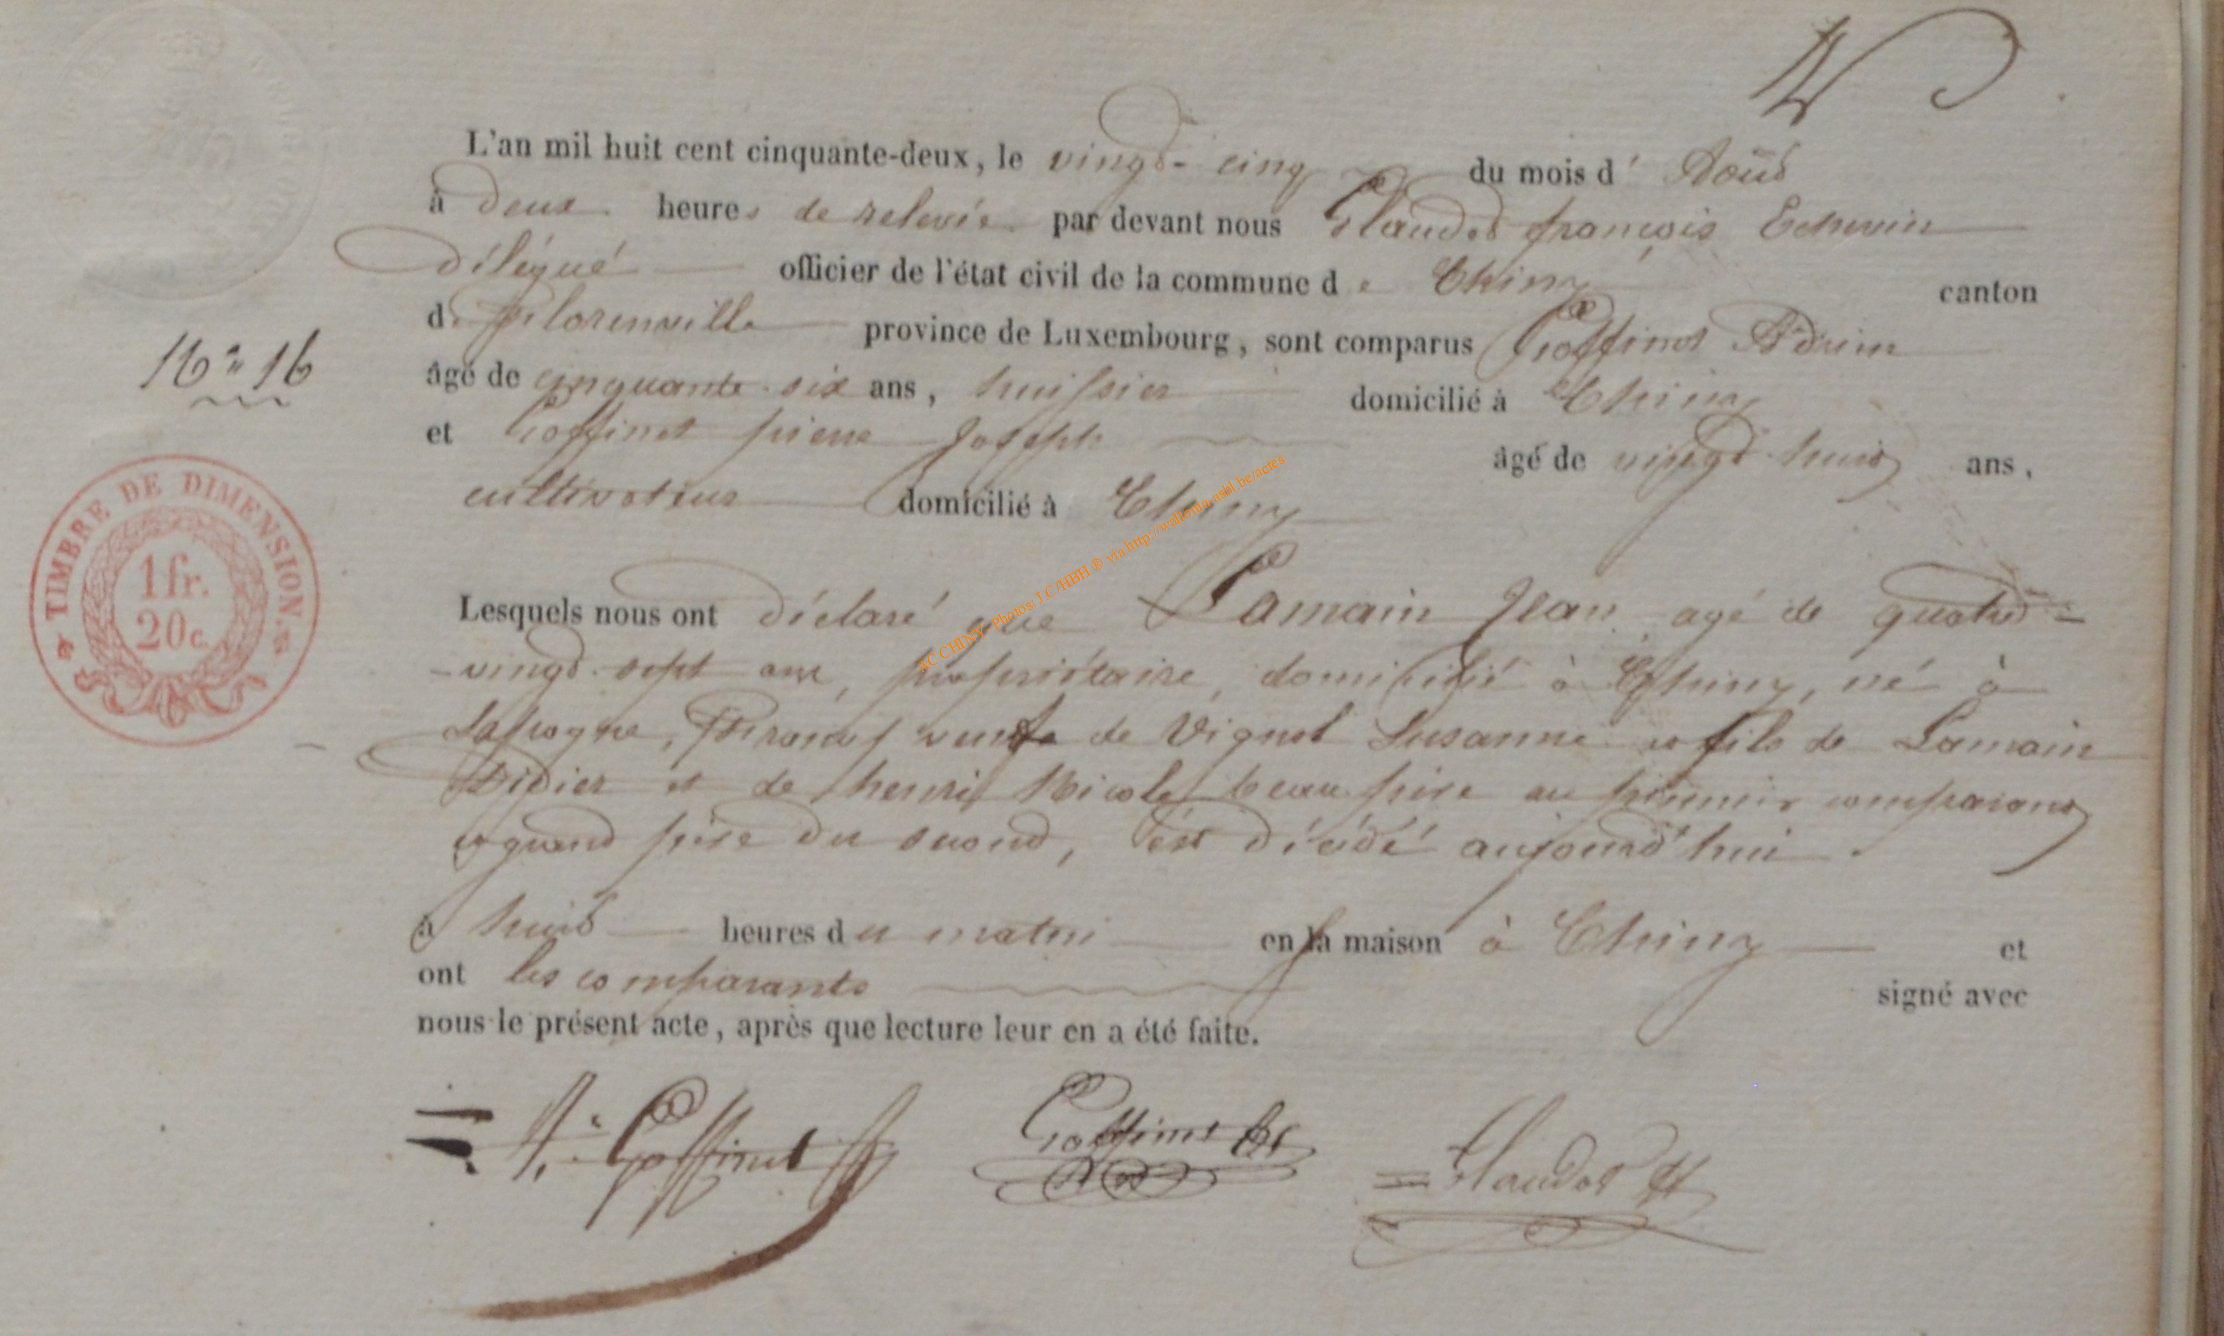 L'an mil huit cent cinquante-deux, le vingt-cinq du mois d' Août
à deux heures de relevée par devant nous Glaudot françois Echevin
délégué officier de l'état civil de la commune de Chiny canton
de florenville province de Luxembourg, sont comparus Goffinet Adrien
âgé de cinquante-six ans, huissier domicilié à Chiny
16e 16
et Goffinet pierre Joseph âgé de vingt huit ans,
cultivateur domicilié à Chiny
TIMBRE DE DIMENSION.
1 fr.
20 c.
AC CHINY - Photos J.C/HBH ® via http://wallonia-asbl.be/actes
Lesquels nous ont déclaré que Lamain Jean agé de quatre-
-vingt-sept ans, propriétaire, domicilié à Chiny, né à
veuf de Vignol Susanne et fils de Lamain
Didier et de henri Nicole beau père au premier comparant
et grand père du second, est décédé aujourd'hui
à huit heures du matin en la maison à Chiny et
ont les comparants signé avec
nous le présent acte, après que lecture leur en a été faite.
A. Goffinet Goffinet Glaudot